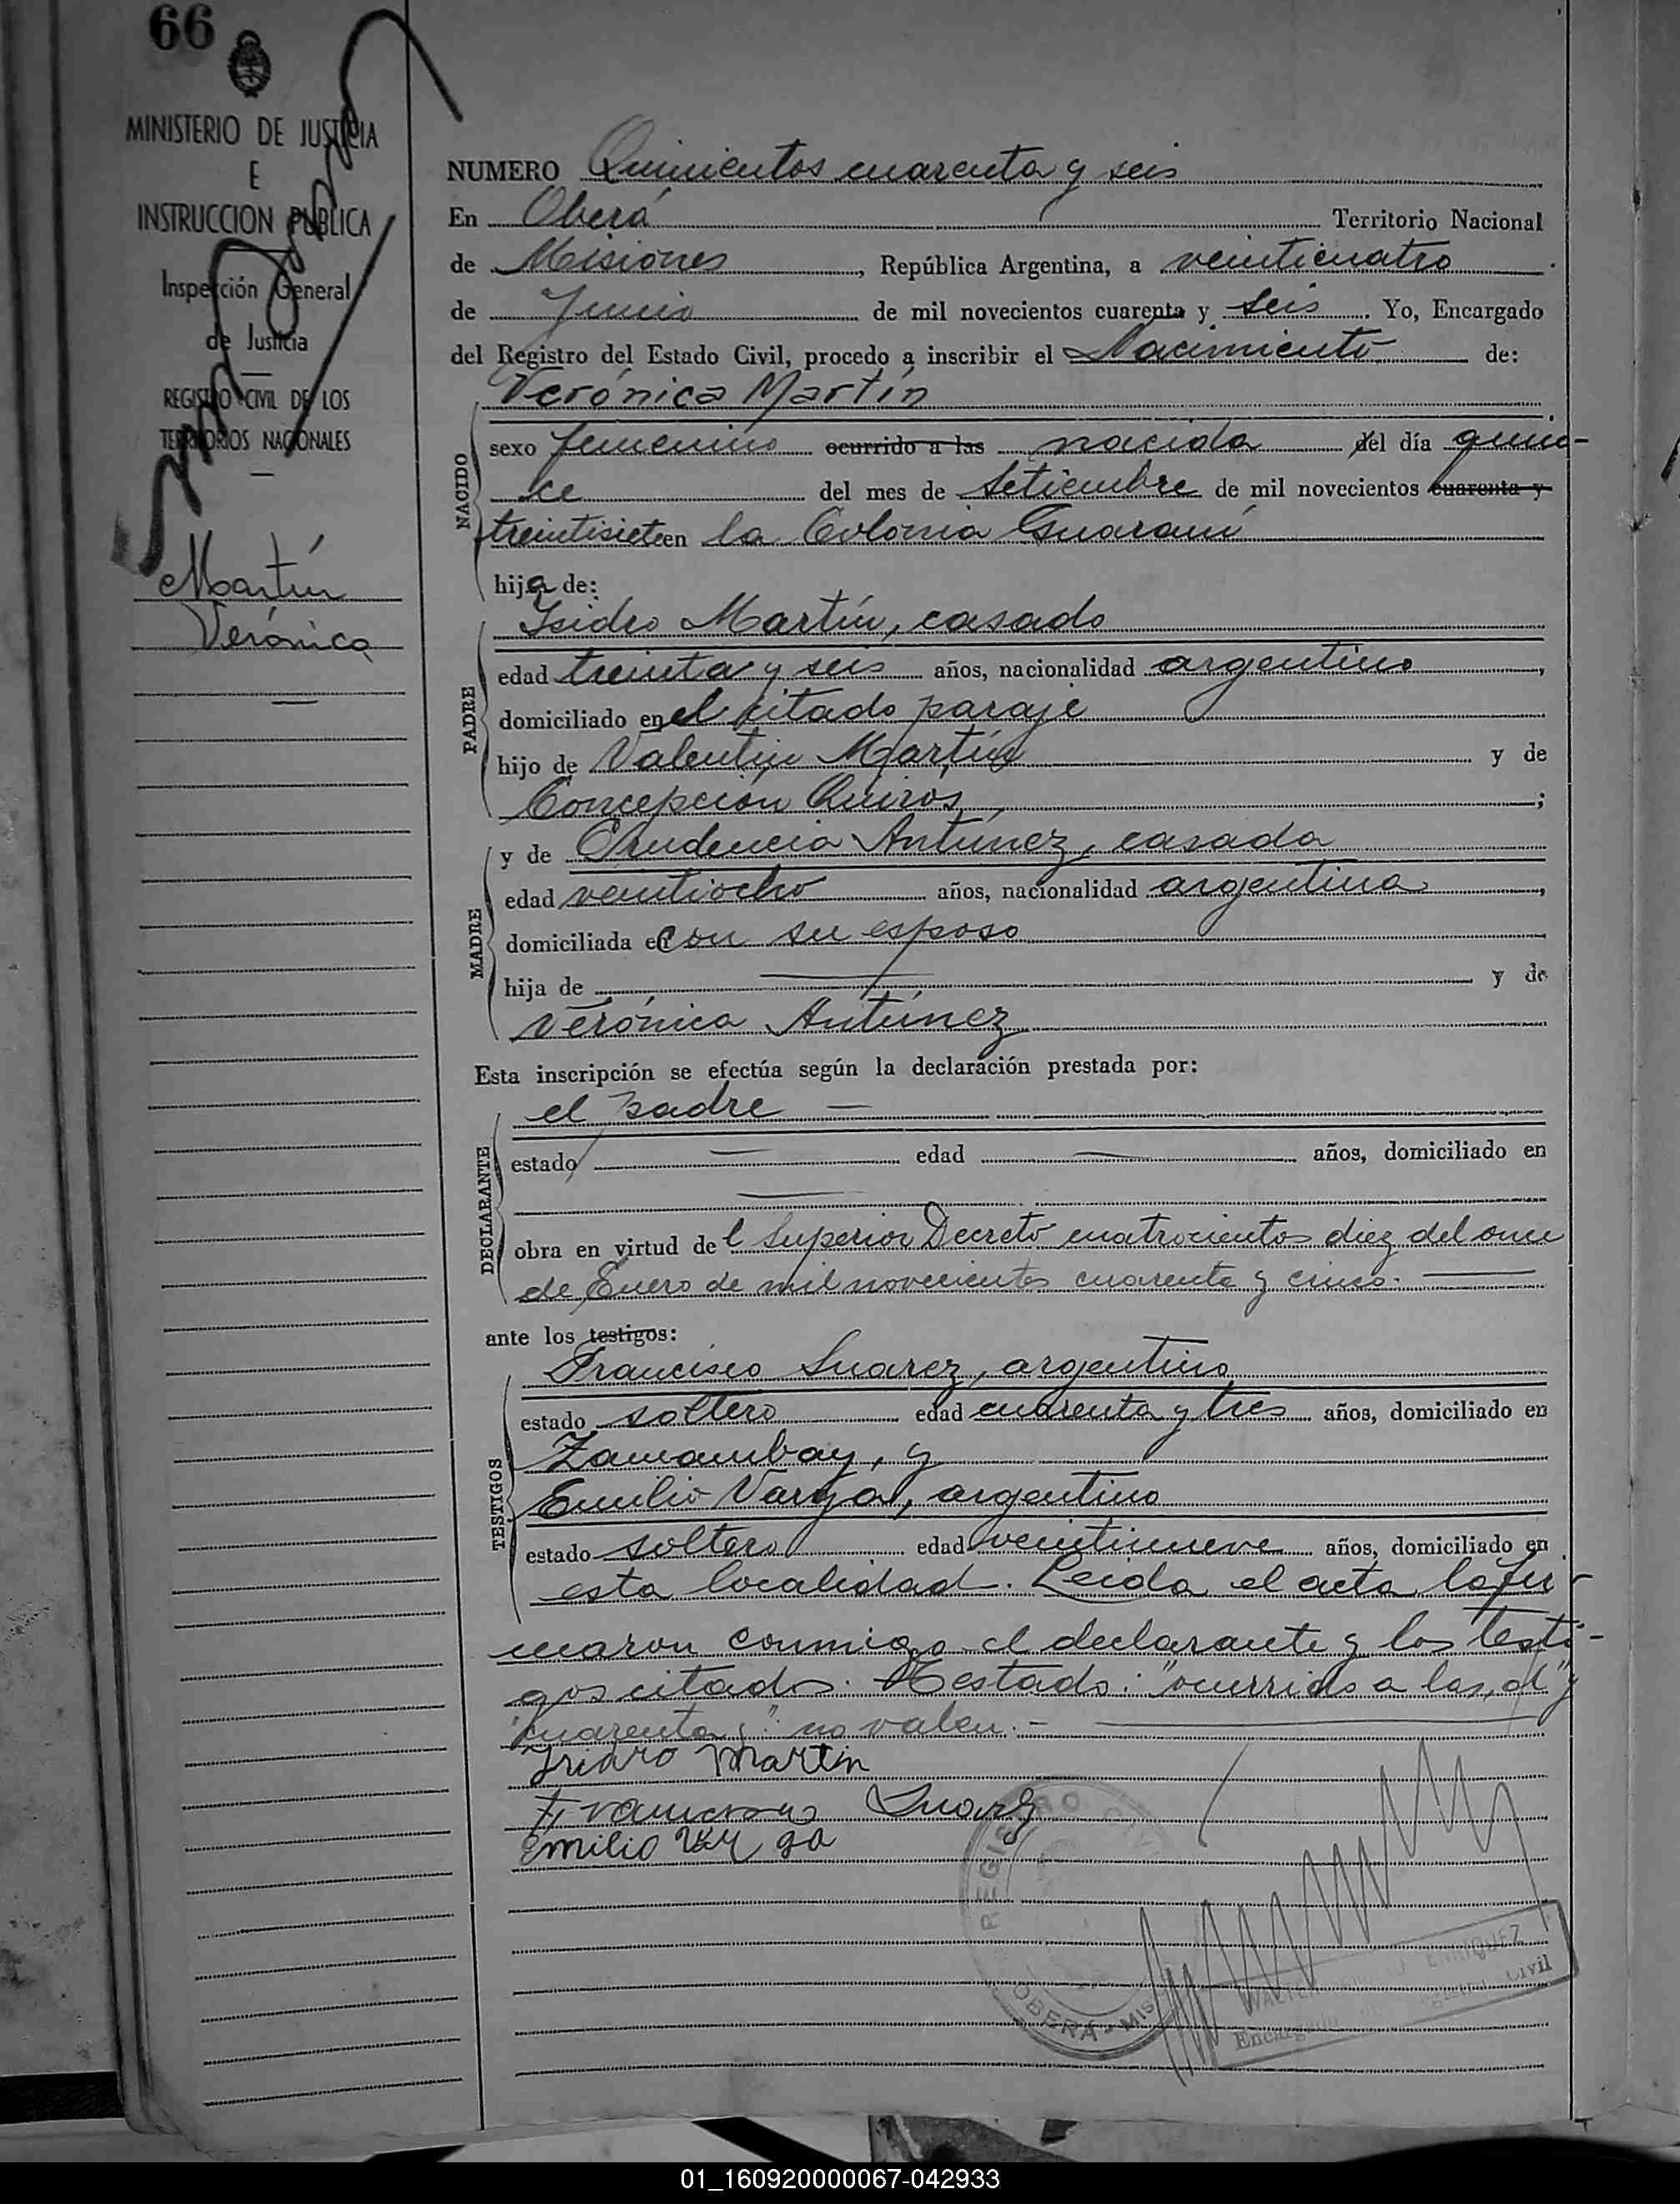 66
MINISTERIO DE JUSTICIA
E
INSTRUCCION PUBLICA
Inspección General
de Justicia
REGISTRO CIVIL DE LOS
TERRITORIOS NACIONALES
Martín
Verónica
NUMERO Quinientos cuarenta y seis
En Oberá Territorio Nacional
de Misiones, República Argentina, a veinticuatro
de Junio de mil novecientos cuarenta y seis. Yo, Encargado
del Registro del Estado Civil, procedo a inscribir el Nacimiento de:
Verónica Martín
NACIDO
sexo femenino ocurrido a las nacida del día quin-
ce del mes de Setiembre de mil novecientos cuarenta y
treintisiete en la Colonia Guaraní
hija de:
PADRE
Isidro Martín, casado
edad treinta y seis años, nacionalidad argentino,
domiciliado en el citado paraje
hijo de Valentín Martín y de
Concepción Quirós,;
MADRE
y de Prudencia Antúnez, casada
edad veintiocho años, nacionalidad argentina,
domiciliada en con su esposo
hija de y de
Verónica Antúnez
Esta inscripción se efectúa según la declaración prestada por:
DECLARANTE
el padre —
estado — edad — años, domiciliado en
—
obra en virtud del Superior Decreto cuatrocientos diez del once
de Enero de mil novecientos cuarenta y cinco. —
ante los testigos:
TESTIGOS
Francisco Suarez, argentino
estado soltero edad cuarenta y tres años, domiciliado en
Zamambay, y
Emilio Varga, argentino
estado soltero edad veintinueve años, domiciliado en
esta localidad. Leida el acta la fir-
maron conmigo el declarante y los testi-
gos citados. Testado: "ocurrido a las, d" y
"cuarenta y" no valen. —
Isidro Martín
Francisco Suarez
Emilio Varga
REGISTRO CIVIL
OBERA - MIS
ENRIQUEZ
Encargado Registro Civil
01_160920000067-042933